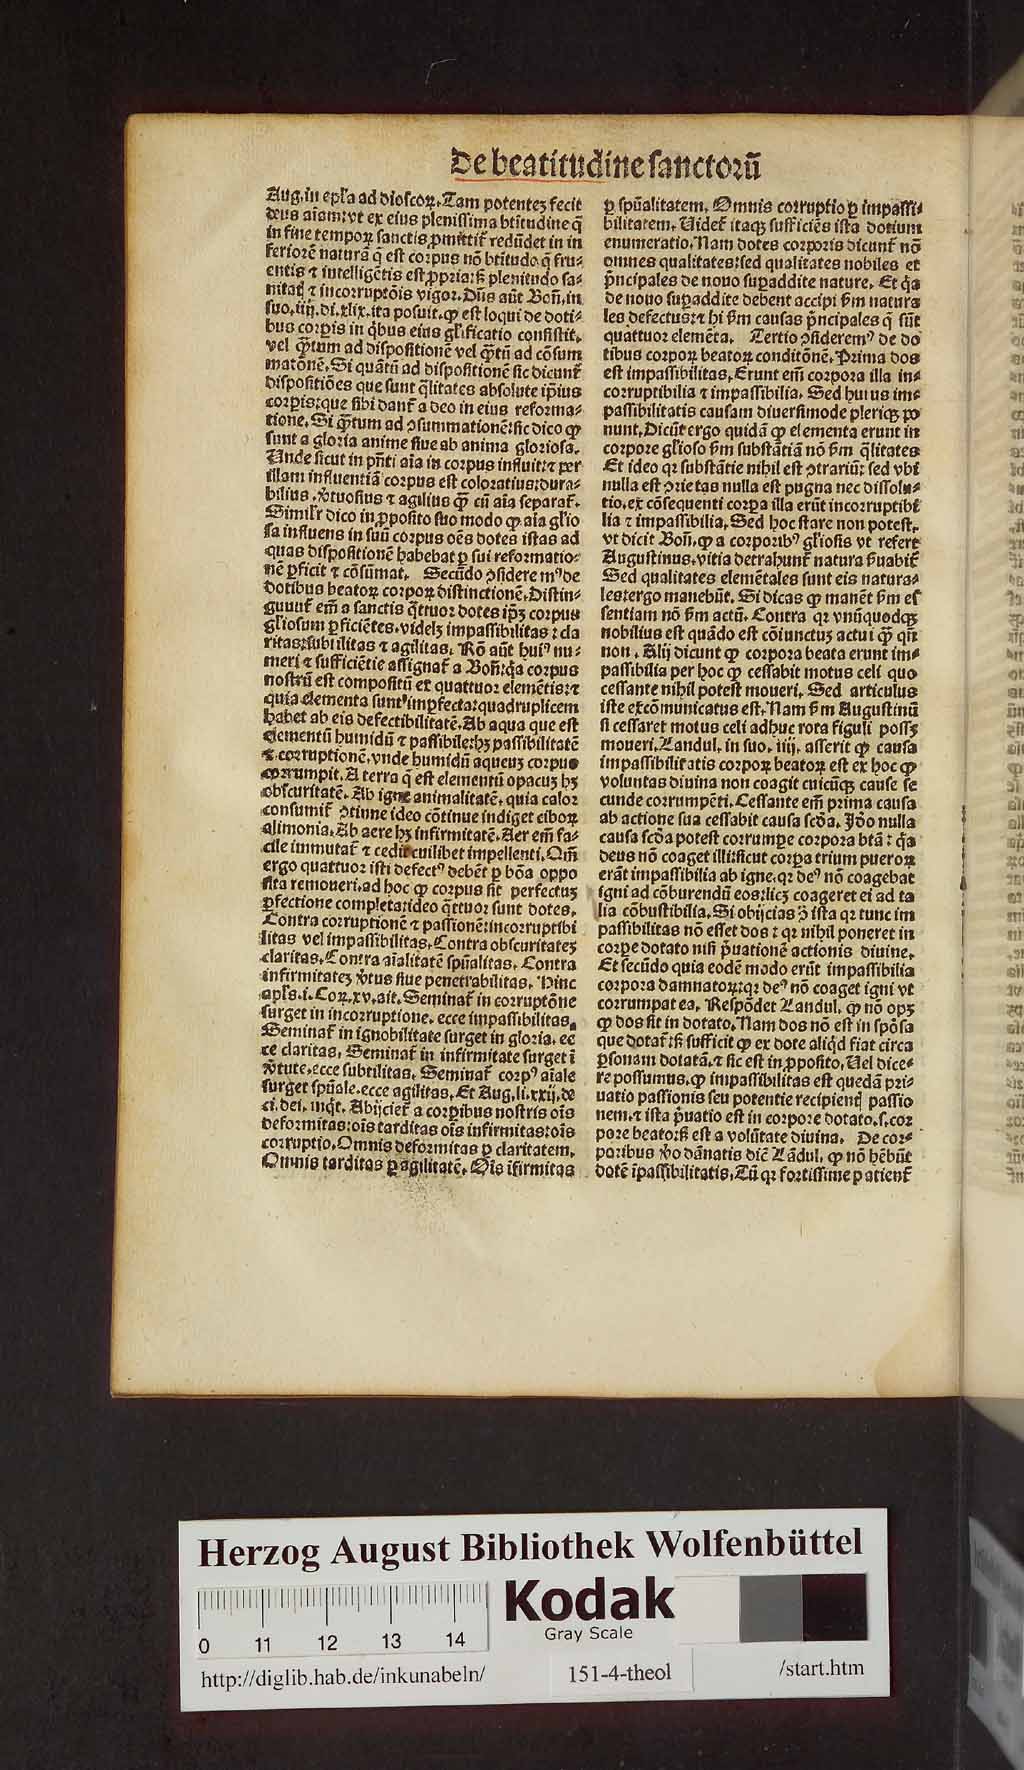 De beatitudine sanctorū
Aug. in epl'a ad dioscoꝝ. Tam potentez fecit
deus aīam: vt ex eius plenissima btītudine q̄
in fine tempoꝝ sanctis ꝓmittit̄ redūdet in in
feriorē naturā q̄ est corpus nō btītudo q̄ fru-
entis ⁊ intelligētis est ꝓpria: sꝫ plenitudo sa-
nitatꝭ ⁊ incorruptōis vigor. Dn̄s aūt Boñ. in
suo. iiij. di. xlix. ita posuit. ꝙ est loqui de doti-
bus corꝑis in qͥbus eius gl'ificatio consistit.
vel qͣꝫtum ad dispositionē vel qͣꝫtū ad cōsum
matōnē. Si quātū ad dispositionē sic dicunt̄
dispositiōes que sunt q̄litates absolute ip̄ius
corꝑis: que sibi dant̄ a deo in eius reforma-
tione. Si qͣꝫtum ad ꝯsummationē: sic dico ꝙ
sunt a gloria anime siue ab anima gloriosa.
Unde sicut in pn̄ti aīa in corpus influit: ⁊ per
illam influentiā corpus est coloratius: dura-
bilius. v̓tuosius ⁊ agilius qͣꝫ cū aīa separat̄.
Simil'r dico in ꝓposito suo modo ꝙ aīa gl'io
sa influens in suū corpus oēs dotes istas ad
quas dispositionē habebat ꝑ sui reformatio-
nē ꝑficit ⁊ cōsūmat. Secūdo ꝯsideremꝰ de
dotibus beatoꝝ corpoꝝ distinctionē. Distin-
guunt̄ em̄ a sanctis q̄ttuor dotes ip̄ꝫ corpus
gl'iosum ꝑficiētes. videlꝫ impassibilitas: cla
ritas: subtilitas ⁊ agilitas. Rō aūt huiꝰ nu-
meri ⁊ sufficiētie assignat̄ a Boñ: qꝛ corpus
nostrū est compositū ex quattuor elemētis: ⁊
quia elementa sunt imꝑfecta: quadruplicem
habet ab eis defectibilitatē. Ab aqua que est
elementū humidū ⁊ passibile: hꝫ passibilitatē
⁊ corruptionē. vnde humidū aqueuꝫ corpus
corrumpit. A terra q̄ est elementū opacuꝫ hꝫ
obscuritatē. Ab igne animalitatē. quia calor
consumit̄ ꝯtinue ideo cōtinue indiget ciboꝝ
alimonia. Ab aere hꝫ infirmitatē. Aer em̄ fa-
cile immutat̄ ⁊ cedit cuilibet impellenti. Om̄
ergo quattuor isti defectꝰ debēt ꝑ bōa oppo
sita remoueri. ad hoc ꝙ corpus sit perfectuꝫ
ꝑfectione completa: ideo q̄ttuor sunt dotes.
Contra corruptionē ⁊ passionē: incorruptibi
litas vel impassibilitas. Contra obscuritateꝫ
claritas. Contra aīalitatē spūalitas. Contra
infirmitateꝫ v̓tus siue penetrabilitas. Hinc
apl's. i. Coꝝ. xv. ait. Seminat̄ in corruptōne
surget in incorruptione. ecce impassibilitas.
Seminat̄ in ignobilitate surget in gloria. ec
ce claritas. Seminat̄ in infirmitate surget ī
v̓tute. ecce subtilitas. Seminat̄ corpꝰ aīale
surget spūale. ecce agilitas. Et Aug. li. xxij. de
ci. dei. inqͥt. Abijciet̄ a corꝑibus nostris oīs
deformitas: oīs tarditas oīs infirmitas: oīs
corruptio. Omnis deformitas ꝑ claritatem.
Omnis tarditas ꝑ agilitatē. Oīs īfirmitas
ꝑ spūalitatem. Omnis corruptio ꝑ impassi-
bilitatem. Uidet̄ itaqꝫ sufficiēs ista dotium
enumeratio. Nam dotes corporis dicunt̄ nō
omnes qualitates: sed qualitates nobiles et
pͥncipales de nouo suꝑaddite nature. Et qꝛ
de nouo suꝑaddite debent accipi ẜm natura
les defectus: ⁊ hi ẜm causas pͥncipales q̄ sūt
quattuor elemēta. Tertio ꝯsideremꝰ de do
tibus corpoꝝ beatoꝝ conditōnē. Prima dos
est impassibilitas. Erunt em̄ corpora illa in-
corruptibilia ⁊ impassibilia. Sed huius im-
passibilitatis causam diuersimode pleriqꝫ po
nunt. Dicūt ergo quidā ꝙ elementa erunt in
corpore gl'ioso ẜm substātiā nō ẜm q̄litates
Et ideo qꝛ substātie nihil est ꝯtrariū: sed vbi
nulla est ꝯtrietas nulla est pugna nec dissolu-
tio. ex cōsequenti corꝑa illa erūt incorruptibi
lia ⁊ impassibilia. Sed hoc stare non potest.
vt dicit Boñ. ꝙ a corporibꝰ gl'iosis vt refert
Augustinus. vitia detrahunt̄ natura ẜuabit̄
Sed qualitates elemētales sunt eis natura-
les: ergo manebūt. Si dicas ꝙ manēt ẜm es
sentiam nō ẜm actū. Contra qꝛ vnūquodqꝫ
nobilius est quādo est cōiunctuꝫ actui qͣꝫ qn̄
non. Alij dicunt ꝙ corpora beata erunt im-
passibilia per hoc ꝙ cessabit motus celi quo
cessante nihil potest moueri. Sed articulus
iste excōmunicatus est. Nam ẜm Augustinū
si cessaret motus celi adhuc rota figuli possꝫ
moueri. Landul. in suo. iiij. asserit ꝙ causa
impassibilitatis corpoꝝ beatoꝝ est ex hoc ꝙ
voluntas diuina non coagit cuicūqꝫ cause se
cunde corrumpēti. Cessante em̄ prima causa
ab actione sua cessabit causa scd̄a. Jō nulla
causa scd̄a potest corrumpe corpora btā: qꝛ
deus nō coaget illi: sicut corꝑa trium pueroꝝ
erāt impassibilia ab igne. qꝛ deꝰ nō coagebat
igni ad cōburendū eos: licꝫ coageret ei ad ta
lia cōbustibilia. Si obijcias ꝯ̓ ista qꝛ tunc im
passibilitas nō esset dos: qꝛ nihil poneret in
corꝑe dotato nisi pͥuationē actionis diuine.
Et secūdo quia eodē modo erūt impassibilia
corpora damnatoꝝ: qꝛ deꝰ nō coaget igni vt
corrumpat ea. Respōdet Landul. ꝙ nō opꝫ
ꝙ dos sit in dotato. Nam dos nō est in spōsa
que dotat̄: sꝫ sufficit ꝙ ex dote aliqͥd fiat circa
ꝑsonam dotatā. ⁊ sic est in ꝓposito. Uel dice-
re possumus. ꝙ impassibilitas est quedā pri-
uatio passionis seu potentie recipientꝭ passio
nem. ⁊ ista pͥuatio est in corpore dotato. s. cor
pore beato: sꝫ est a volūtate diuina. De cor-
poribus v̓o dānatis diē Lādul. ꝙ nō hēbūt
dotē īpassibilitatis. Tū qꝛ fortissime patient̄
Herzog August Bibliothek Wolfenbüttel
Kodak
Gray Scale
0 11 12 13 14
http://diglib.hab.de/inkunabeln/ 151-4-theol /start.htm